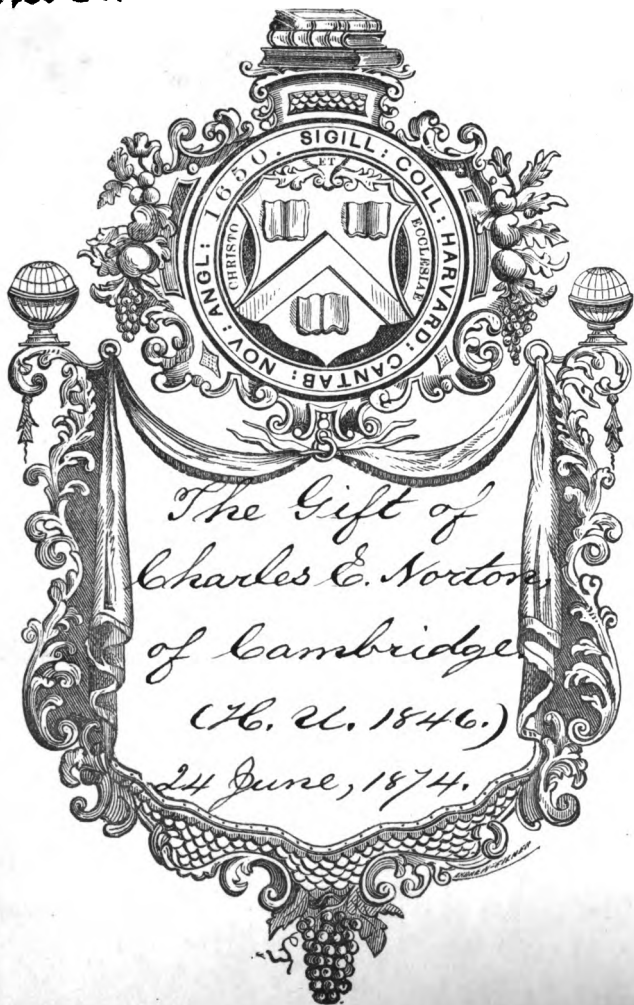 SIGILL: COLL: HARVARD: CANTAB: NOV: ANGL: 1650.
ET
CHRISTO
ECCLESIAE
The Gift of
Charles E. Norton,
of Cambridge.
(H. U. 1846.)
24 June, 1874.